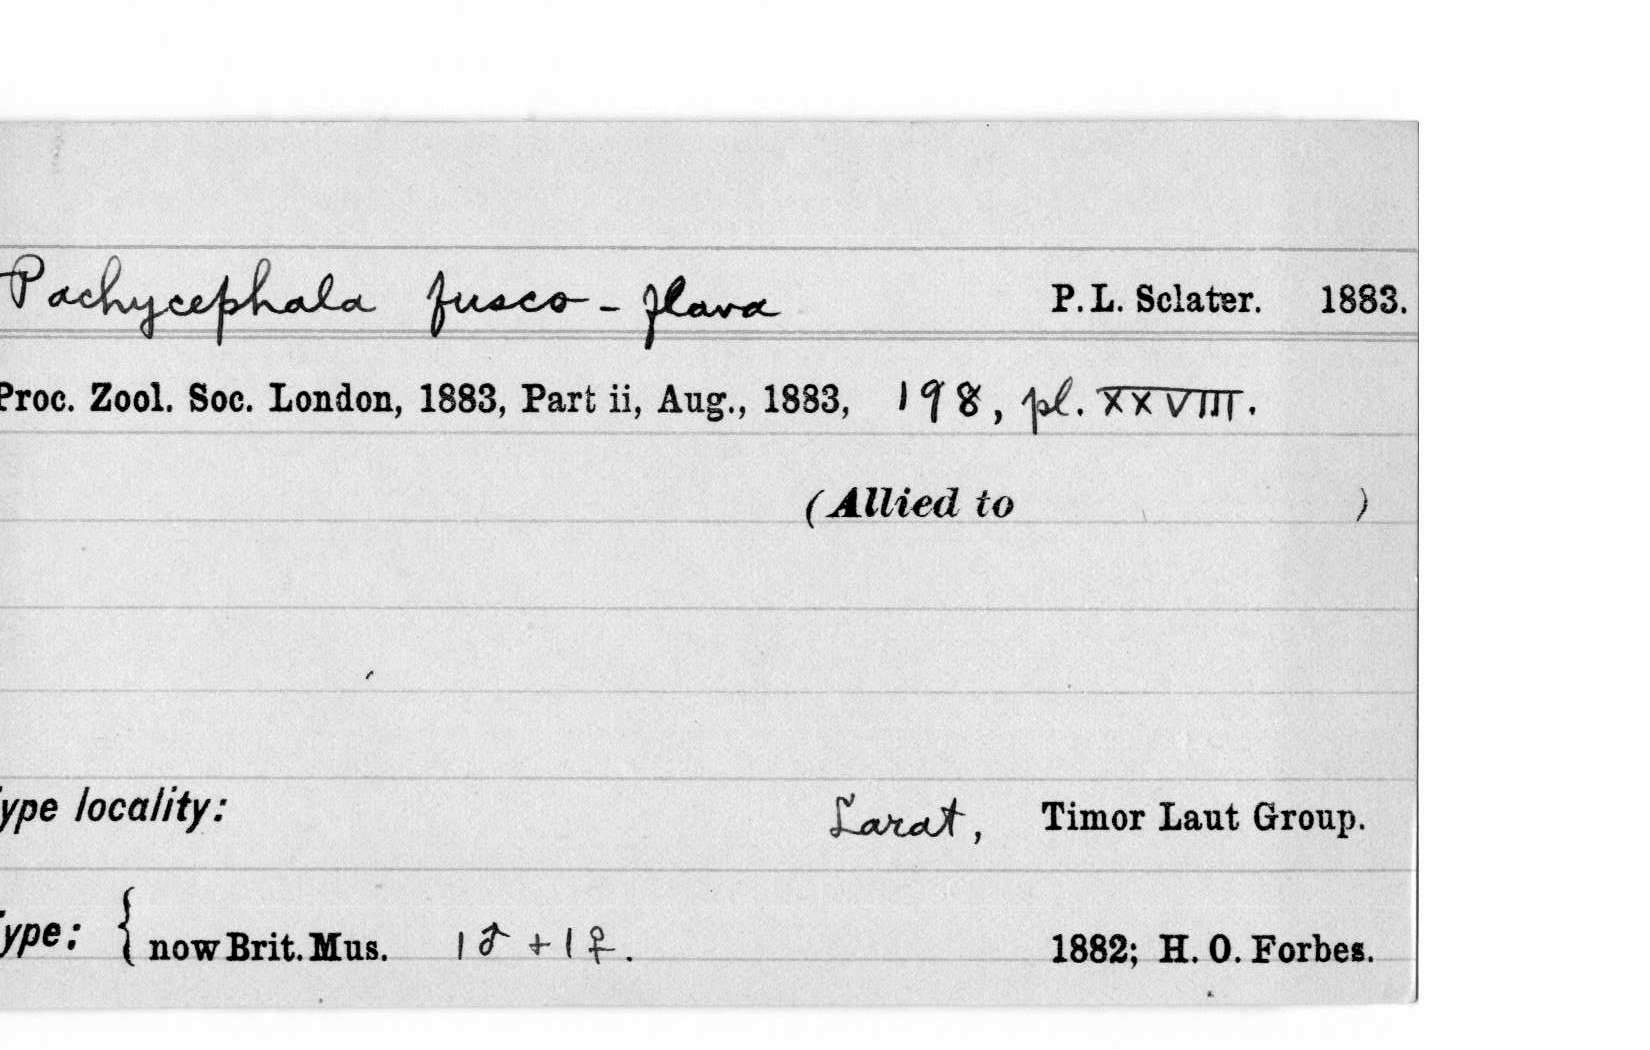 Pachycephala fusco-flava P. L. Sclater. 1883.
Proc. Zool. Soc. London, 1883, Part ii, Aug., 1883, 198, pl. XXVIII.
(Allied to )
ype locality: Larat, Timor Laut Group.
ype: { now Brit. Mus. 1♂ + 1♀. 1882; H. O. Forbes.